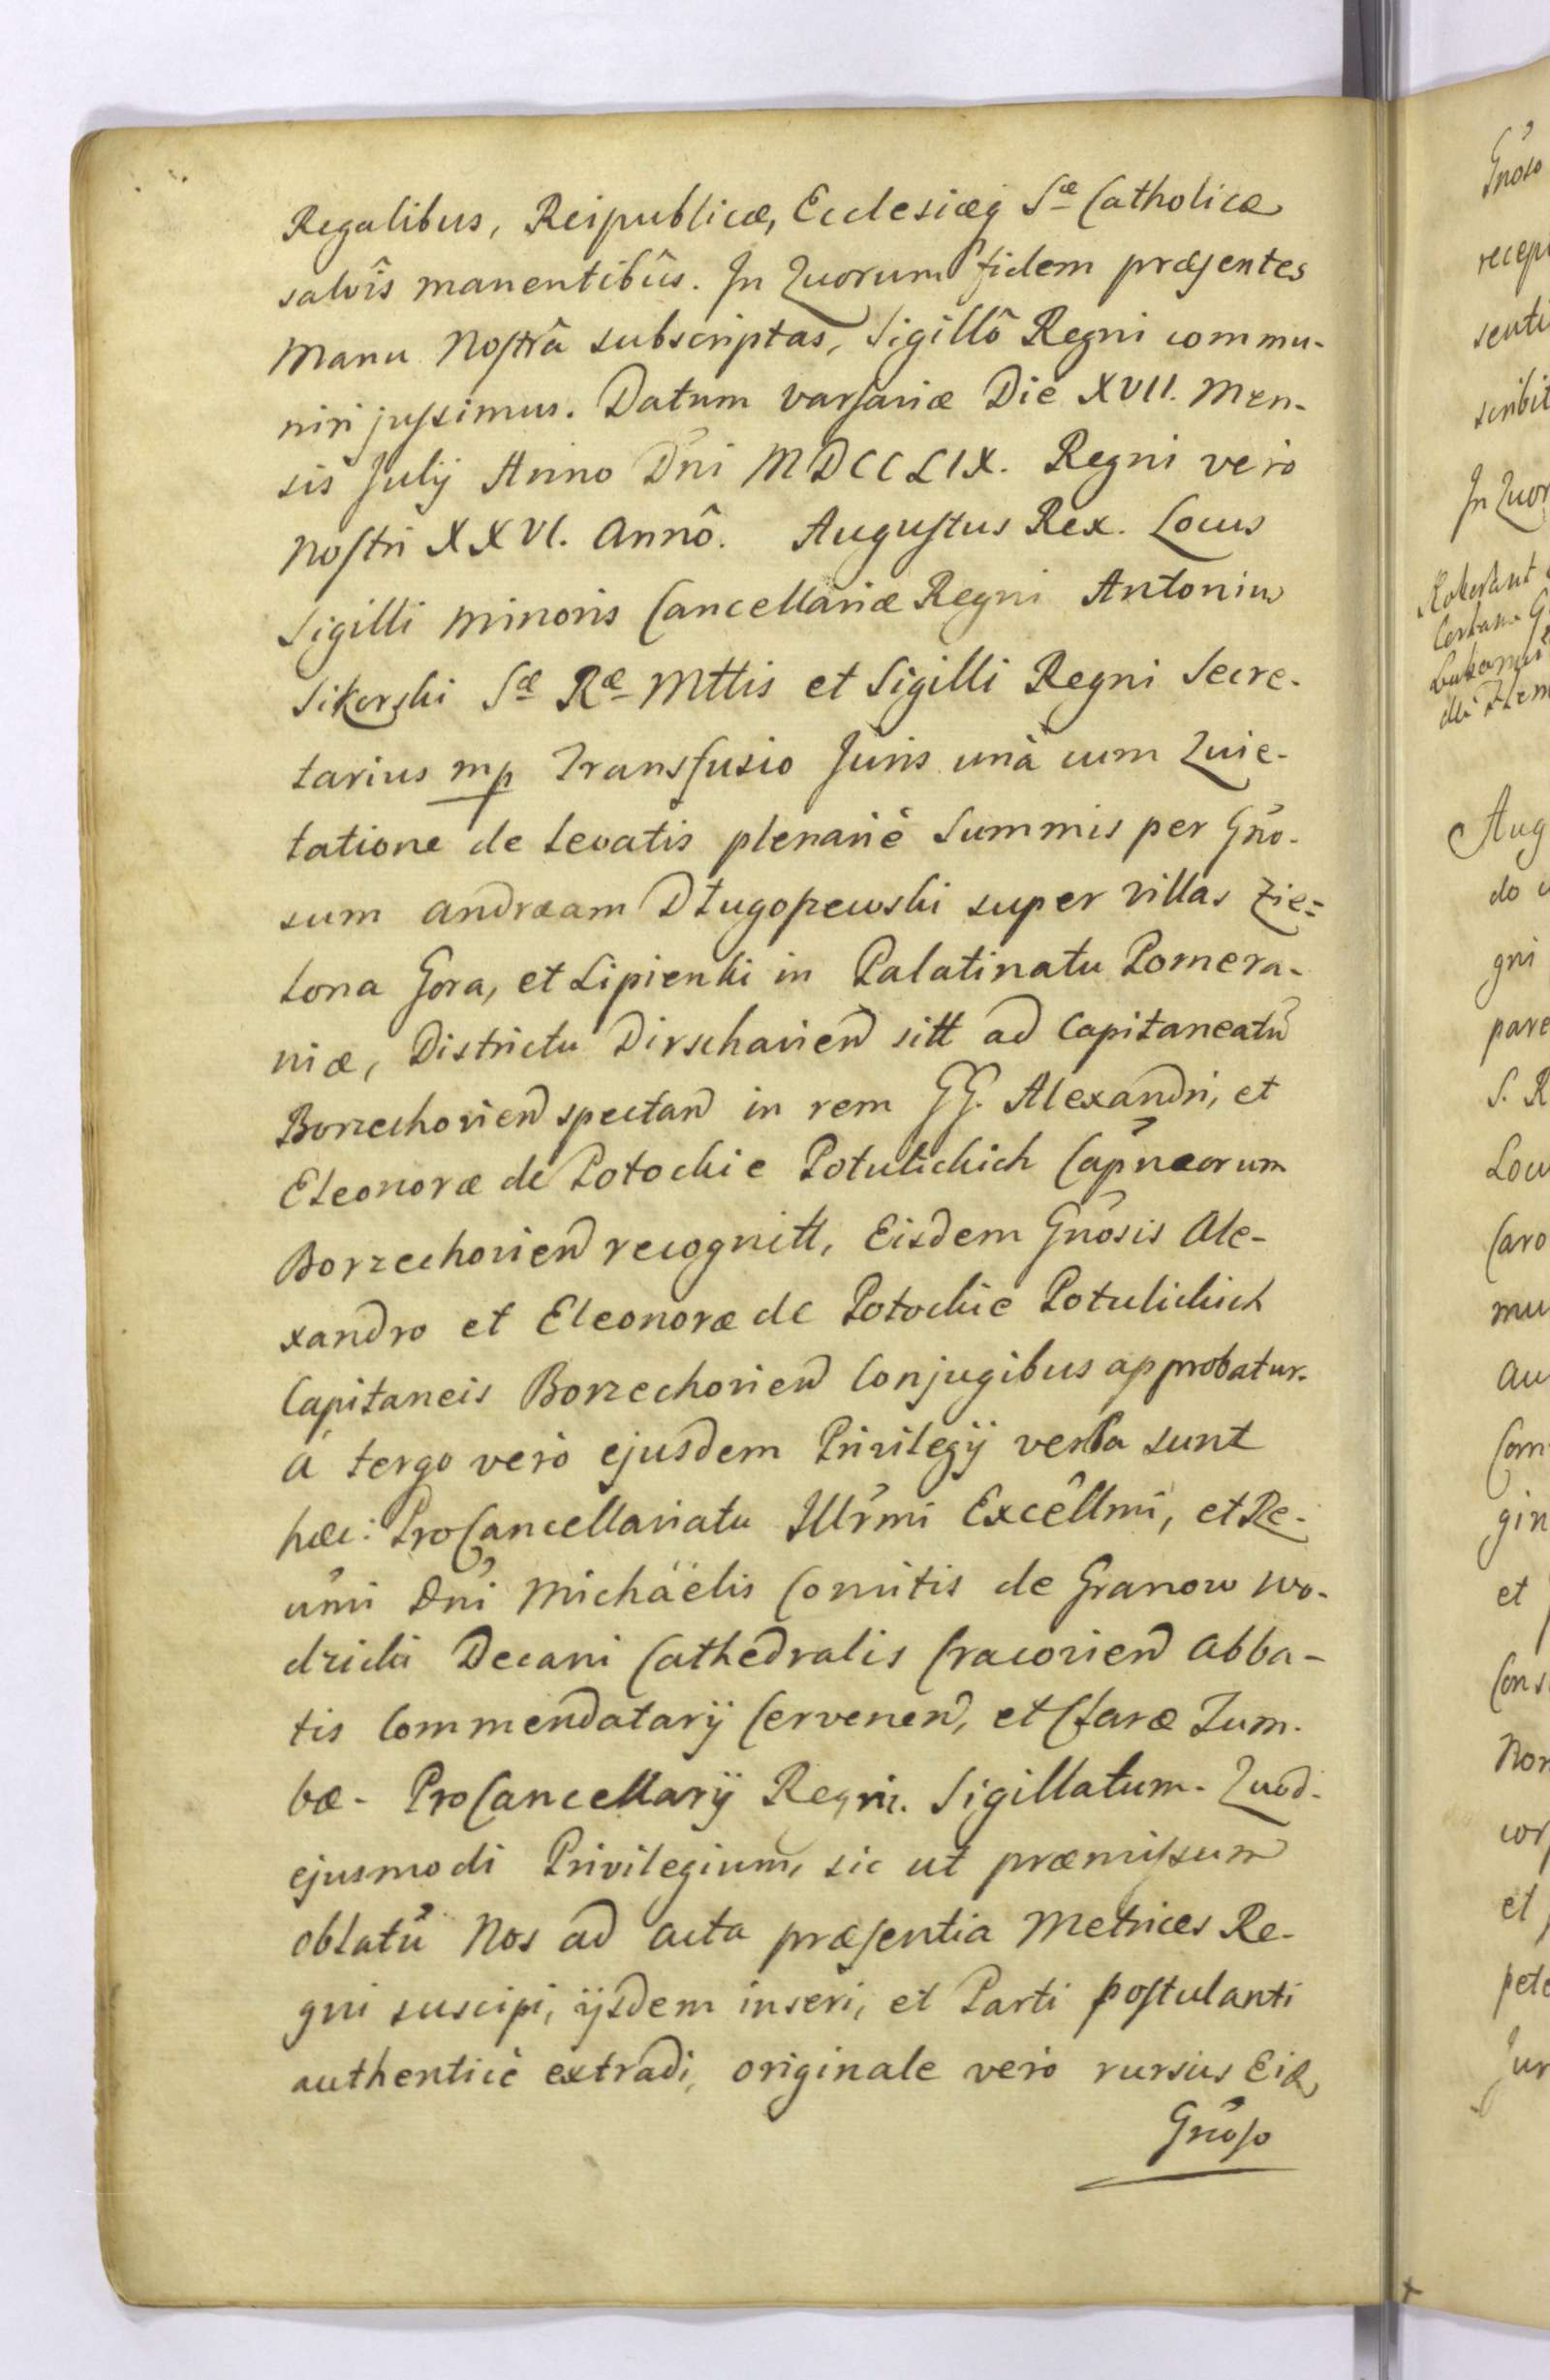 Regalibus, Reipublicæ, Ecclesiæq Sæ Catholicæ
salvîs manentibûs. In Quorum fidem præsentes
Manu Nostrâ subscriptas, Sigillô Regni commu-
niri jussimus. Datum Varsaviæ Die XVII. Men-
sis Julij Anno Dni MDCCLIX. Regni vero
Nostri XXVI. Annô. Augustus Rex. Locus
Sigilli Minoris Cancellariæ Regni Antonius
Sikorski Sæ Ræ Mttis et Sigilli Regni Secre-
tarius mp Transfusio Juris unà cum Quie-
tatione de levatis plenariè Summis per Gno-
sum Andræam Długoszewski super Villas Zie=
lona Gora, et Lipienki in Palatinatu Pomera-
niæ, Districtu Dirschavien sitt ad Capitaneatũ
Borzechovien spectan in rem GG. Alexandri, et
Eleonoræ de Potockie Potulickich Capnæorum
Borzechovien recognitt, Eisdem Gnosis Ale-
xandro et Eleonoræ de Potockie Potulickich
Capitaneis Borzechovien Conjugibus approbatur.
à tergo verò ejusdem Privilegij verba sunt
hæc: ProCancellariatu Illrmi Excellmi, et Re-
vmi Dni Michäelis Comitis de Granow Wo-
dzicki Decani Cathedralis Cracovien Abba-
tis Commendatarij Cervenen, et Claræ Tum-
bæ - ProCancellarij Regni. Sigillatum. Quod-
ejusmodi Privilegium, sic ut præmissum
oblatũ Nos ad acta præsentia Metrices Re-
gni suscipi, ijsdem inseri, et Parti postulanti
authenticè extradi, originale verò rursùs Eid
Gnoso
Gnoso
recep
senti
scribit
In Quor
Aug
do
gni
pare
S. R
Locu
Caro
mu
au
Com
gin
et
Cons
Nos
cor
et
pete
Jur